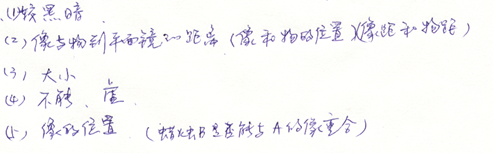 (1)较黑暗
(2)像与物到平面镜的距离(像和物的位置)(像距和物距)
(3)大小
(4)不能、虚
(5)像的位置 (蜡烛B是否能与A的像重合)